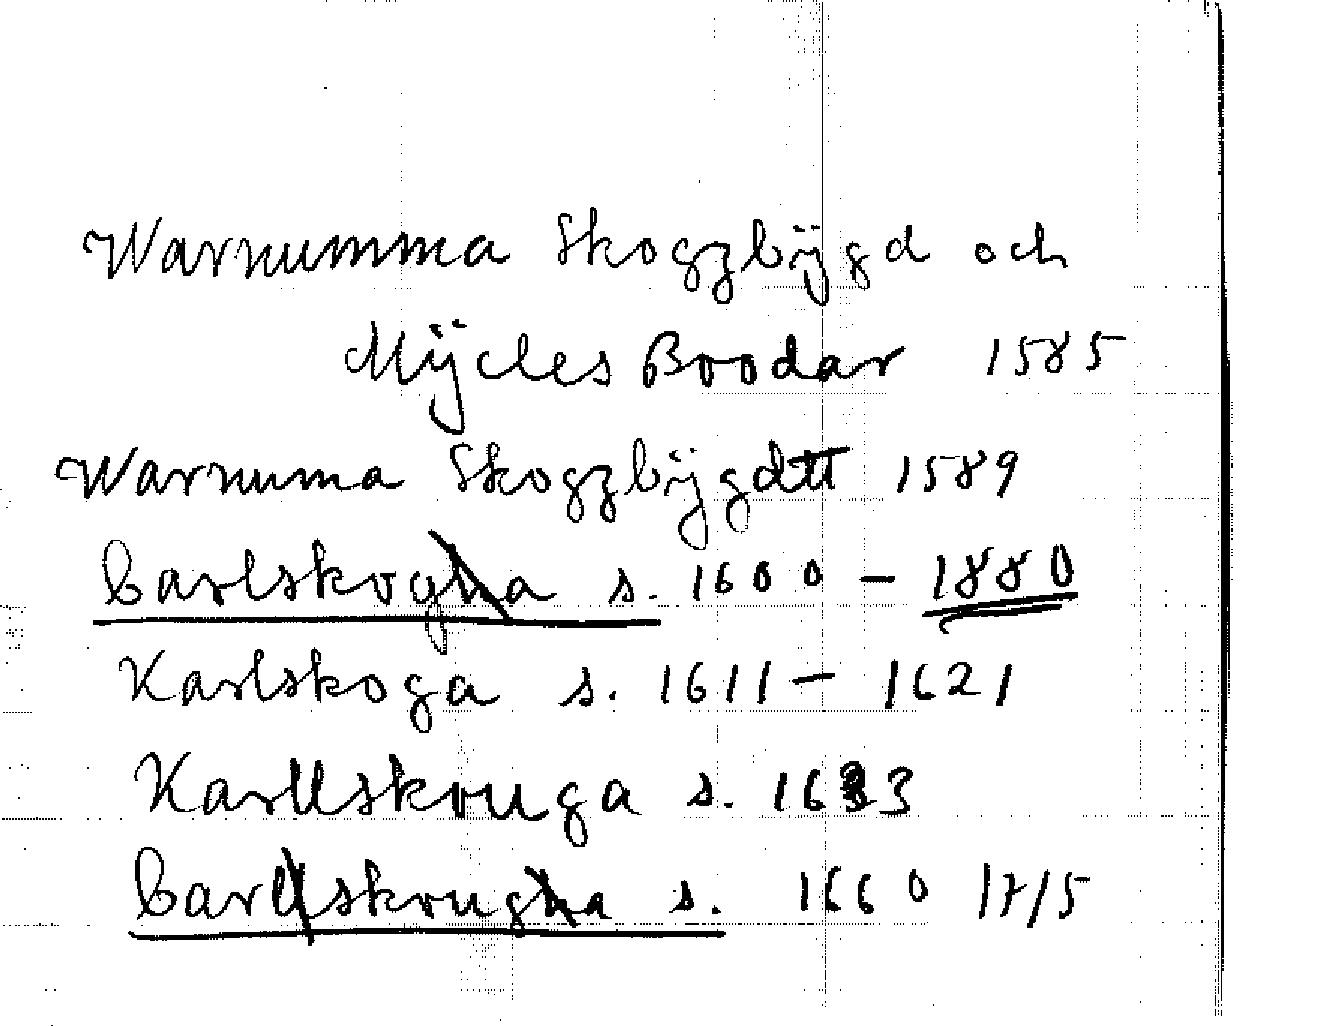 Warnumma Skogzbÿgd och
Mÿcles Boodar 1585
Warnuma Skogzbÿgdtt 1589
Carlskogha s. 1600 – 1880
Karlskoga s. 1611 – 1621
Karllskouga s. 1633
Carllskougha s. 1660 17/5